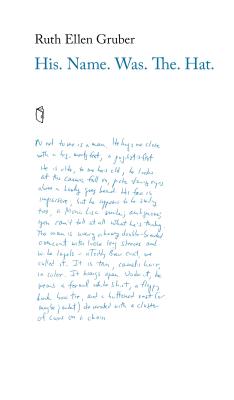 Ruth Ellen Gruber
His. Name. Was. The. Hat.
Next to me is a man. He hugs me close
with a big, meaty
He is old, to me he's old, he looks
at the camera full on, pale eyes
above a bushy grey beard. His face is
impassive, but he appears to be smiling
too, a Mona Lisa smile, ambiguous;
you can't tell at all what he's thinking.
The man is wearing a heavy double-breasted
overcoat with loose long sleeves and
wide lapels - a Teddy Bear coat, we
called it. It is tan, camel's hair,
in color. It hangs open. Under it, he
wears a formal white shirt, a floppy
black bow tie, and a buttoned vest (or
maybe jacket) decorated with a cluster
of coins on a chain.